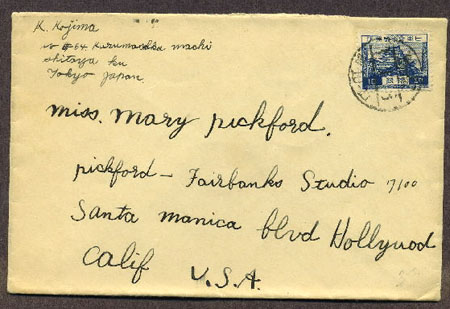 K. Kojima
64 Kurumazaka machi
shitaya ku
Tokyo Japan.
miss. mary pickford.
pickford - Fairbanks Studio 7100
Santa manica blvd Hollywood
Calif U.S.A.